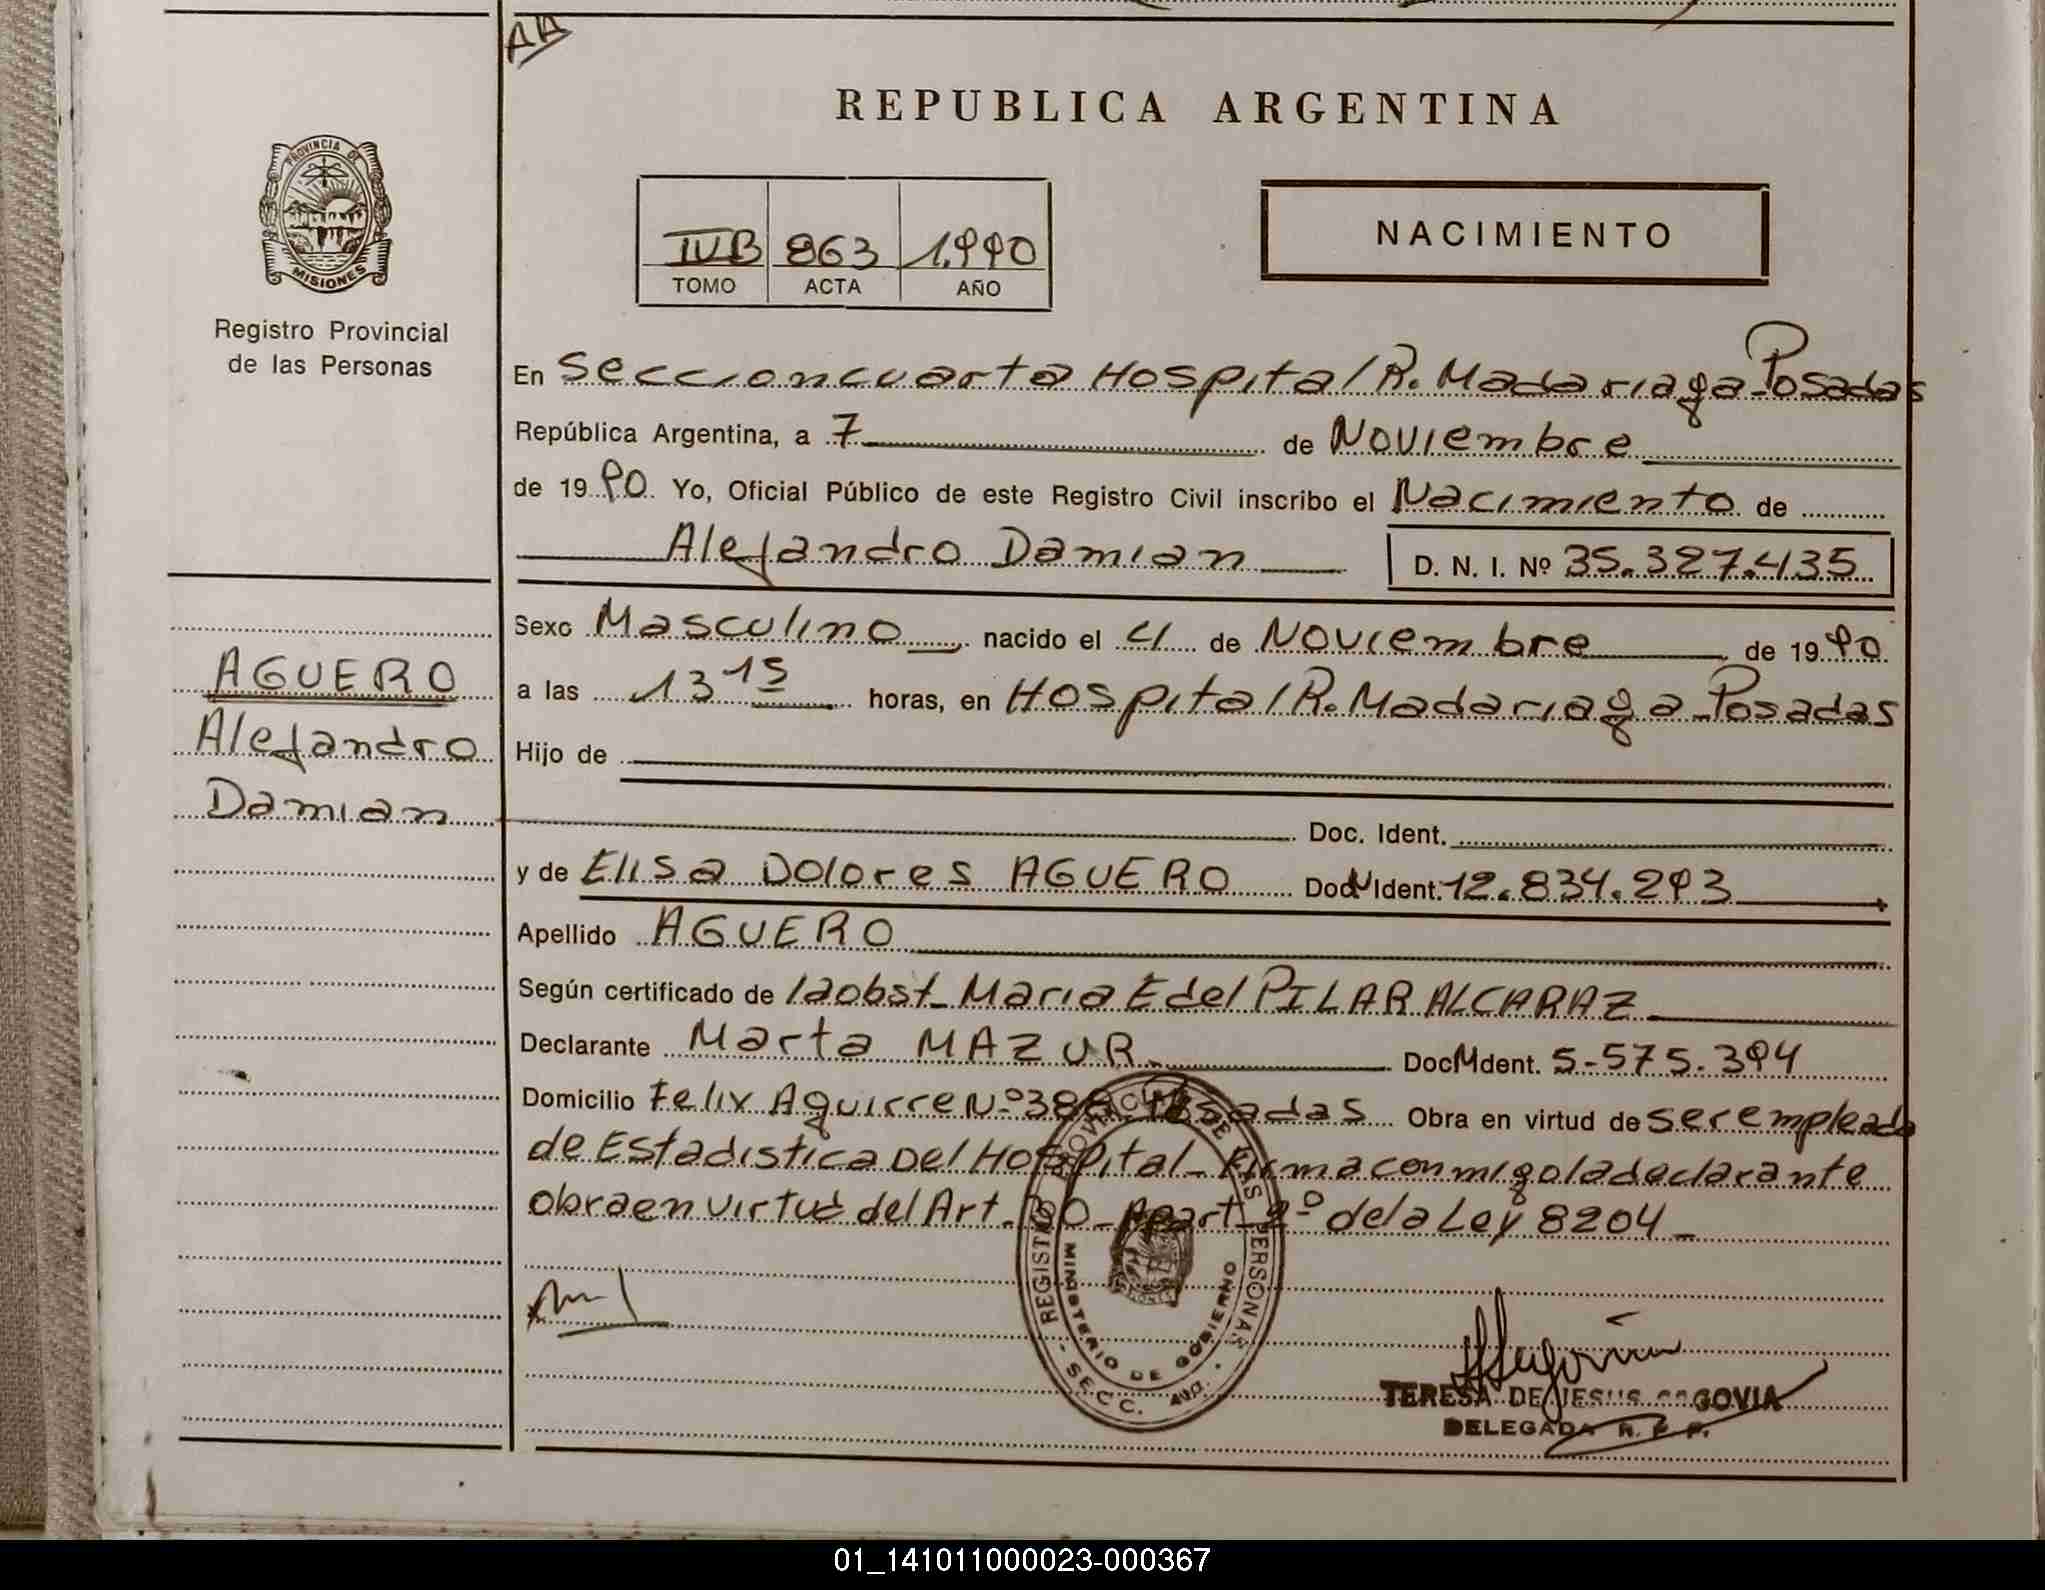 AA
REPUBLICA ARGENTINA
PROVINCIA DE
MISIONES
Registro Provincial
de las Personas
IVB 863 1.990
TOMO ACTA AÑO
NACIMIENTO
En Seccion cuarta Hospital R. Madariaga - Posadas
República Argentina, a 7 de Noviembre
de 1990 Yo, Oficial Público de este Registro Civil inscribo el Nacimiento de
Alejandro Damian D. N. I. Nº 35.327.435
Sexo Masculino nacido el 4 de Noviembre de 1990
a las 13 15 horas, en Hospital R. Madariaga - Posadas
Hijo de
Doc. Ident.
y de Elisa Dolores AGUERO Doc. Ident. 12.834.293
Apellido AGUERO
Según certificado de la obst - Maria E del PILAR ALCARAZ
Declarante Marta MAZUR Doc. Ident. 5-575.394
Domicilio Felix Aguirre Nº Posadas Obra en virtud de ser empleada
de Estadistica Del Hospital - Firma conmigo la declarante
obra en virtud del Art. Apart 2º de la Ley 8204 -
AGUERO
Alejandro
Damian
REGISTRO PROVINCIAL DE LAS PERSONAS
MINISTERIO DE GOBIERNO
SECC.
TERESA DE JESUS SEGOVIA
DELEGADA R. P. P.
01_141011000023-000367